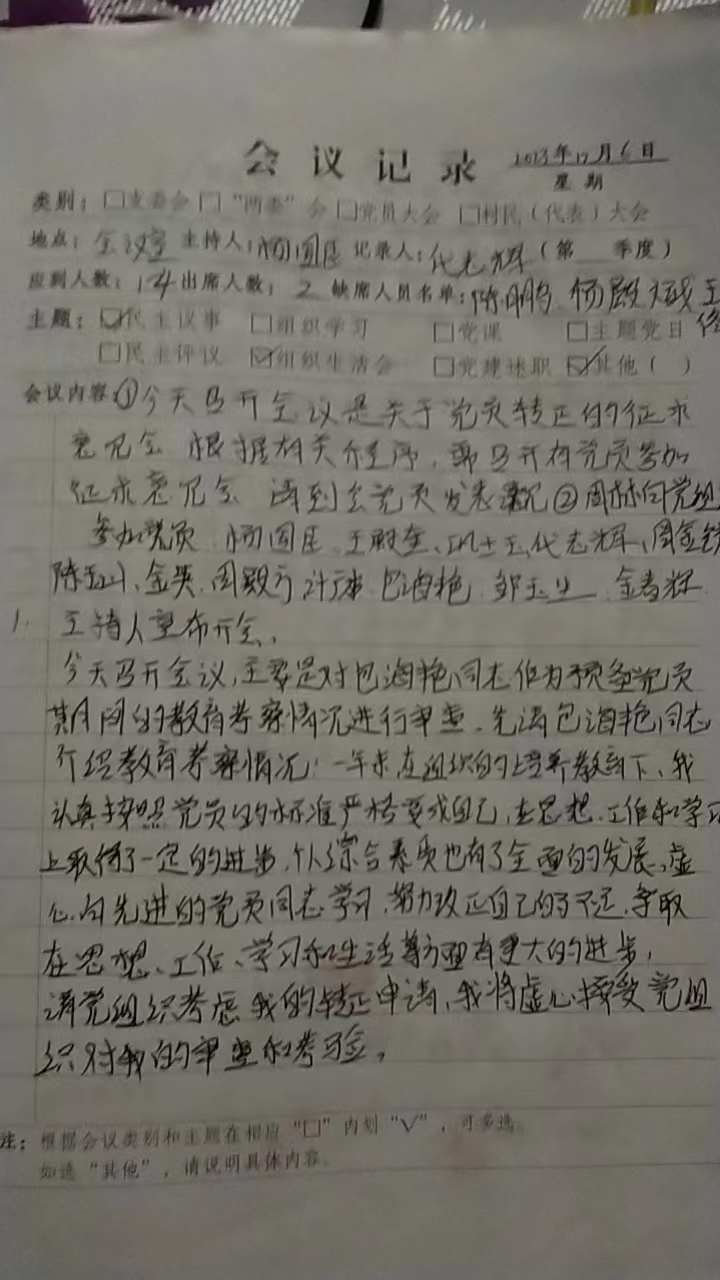 会议记录 2023年12月6日
星期
类别：□支委会 □“两委”会 □党员大会 □村民（代表）大会
地点：会议室 主持人：杨国臣 记录人：代志辉（第 季度）
应到人数：14 出席人数：2 缺席人员名单：陈鹏 杨殿 王
主题：☑民主议事 □组织学习 □党课 □主题党日
□民主评议 ☑组织生活会 □党建述职 ☑其他（ ）
会议内容：①今天召开会议是关于党员转正的征求
意见会 根据有关程序，召开有党员参加
征求意见会 请到会党员发表意见②周 向党组
参加党员 杨国臣、王 代志辉、周金
陈玉山、金英、周殿 包海艳、邹玉 金春辉
1. 主持人宣布开会，
今天召开会议，主要是对包海艳同志作为预备党员
期间的教育考察情况进行审查，先请包海艳同志
介绍教育考察情况：一年来在组织的培养教育下，我
认真按照党员的标准严格要求自己，在思想、工作和学习
上取得了一定的进步，个人综合素质也有了全面的发展，虚
心向先进的党员同志学习，努力改正自己的不足，争取
在思想、工作、学习和生活等方面有更大的进步，
请党组织考虑我的转正申请，我将虚心接受党组
织对我的审查和考验。
注：根据会议类别和主题在相应“□”内划“√”，可多选。
如选“其他”，请说明具体内容。